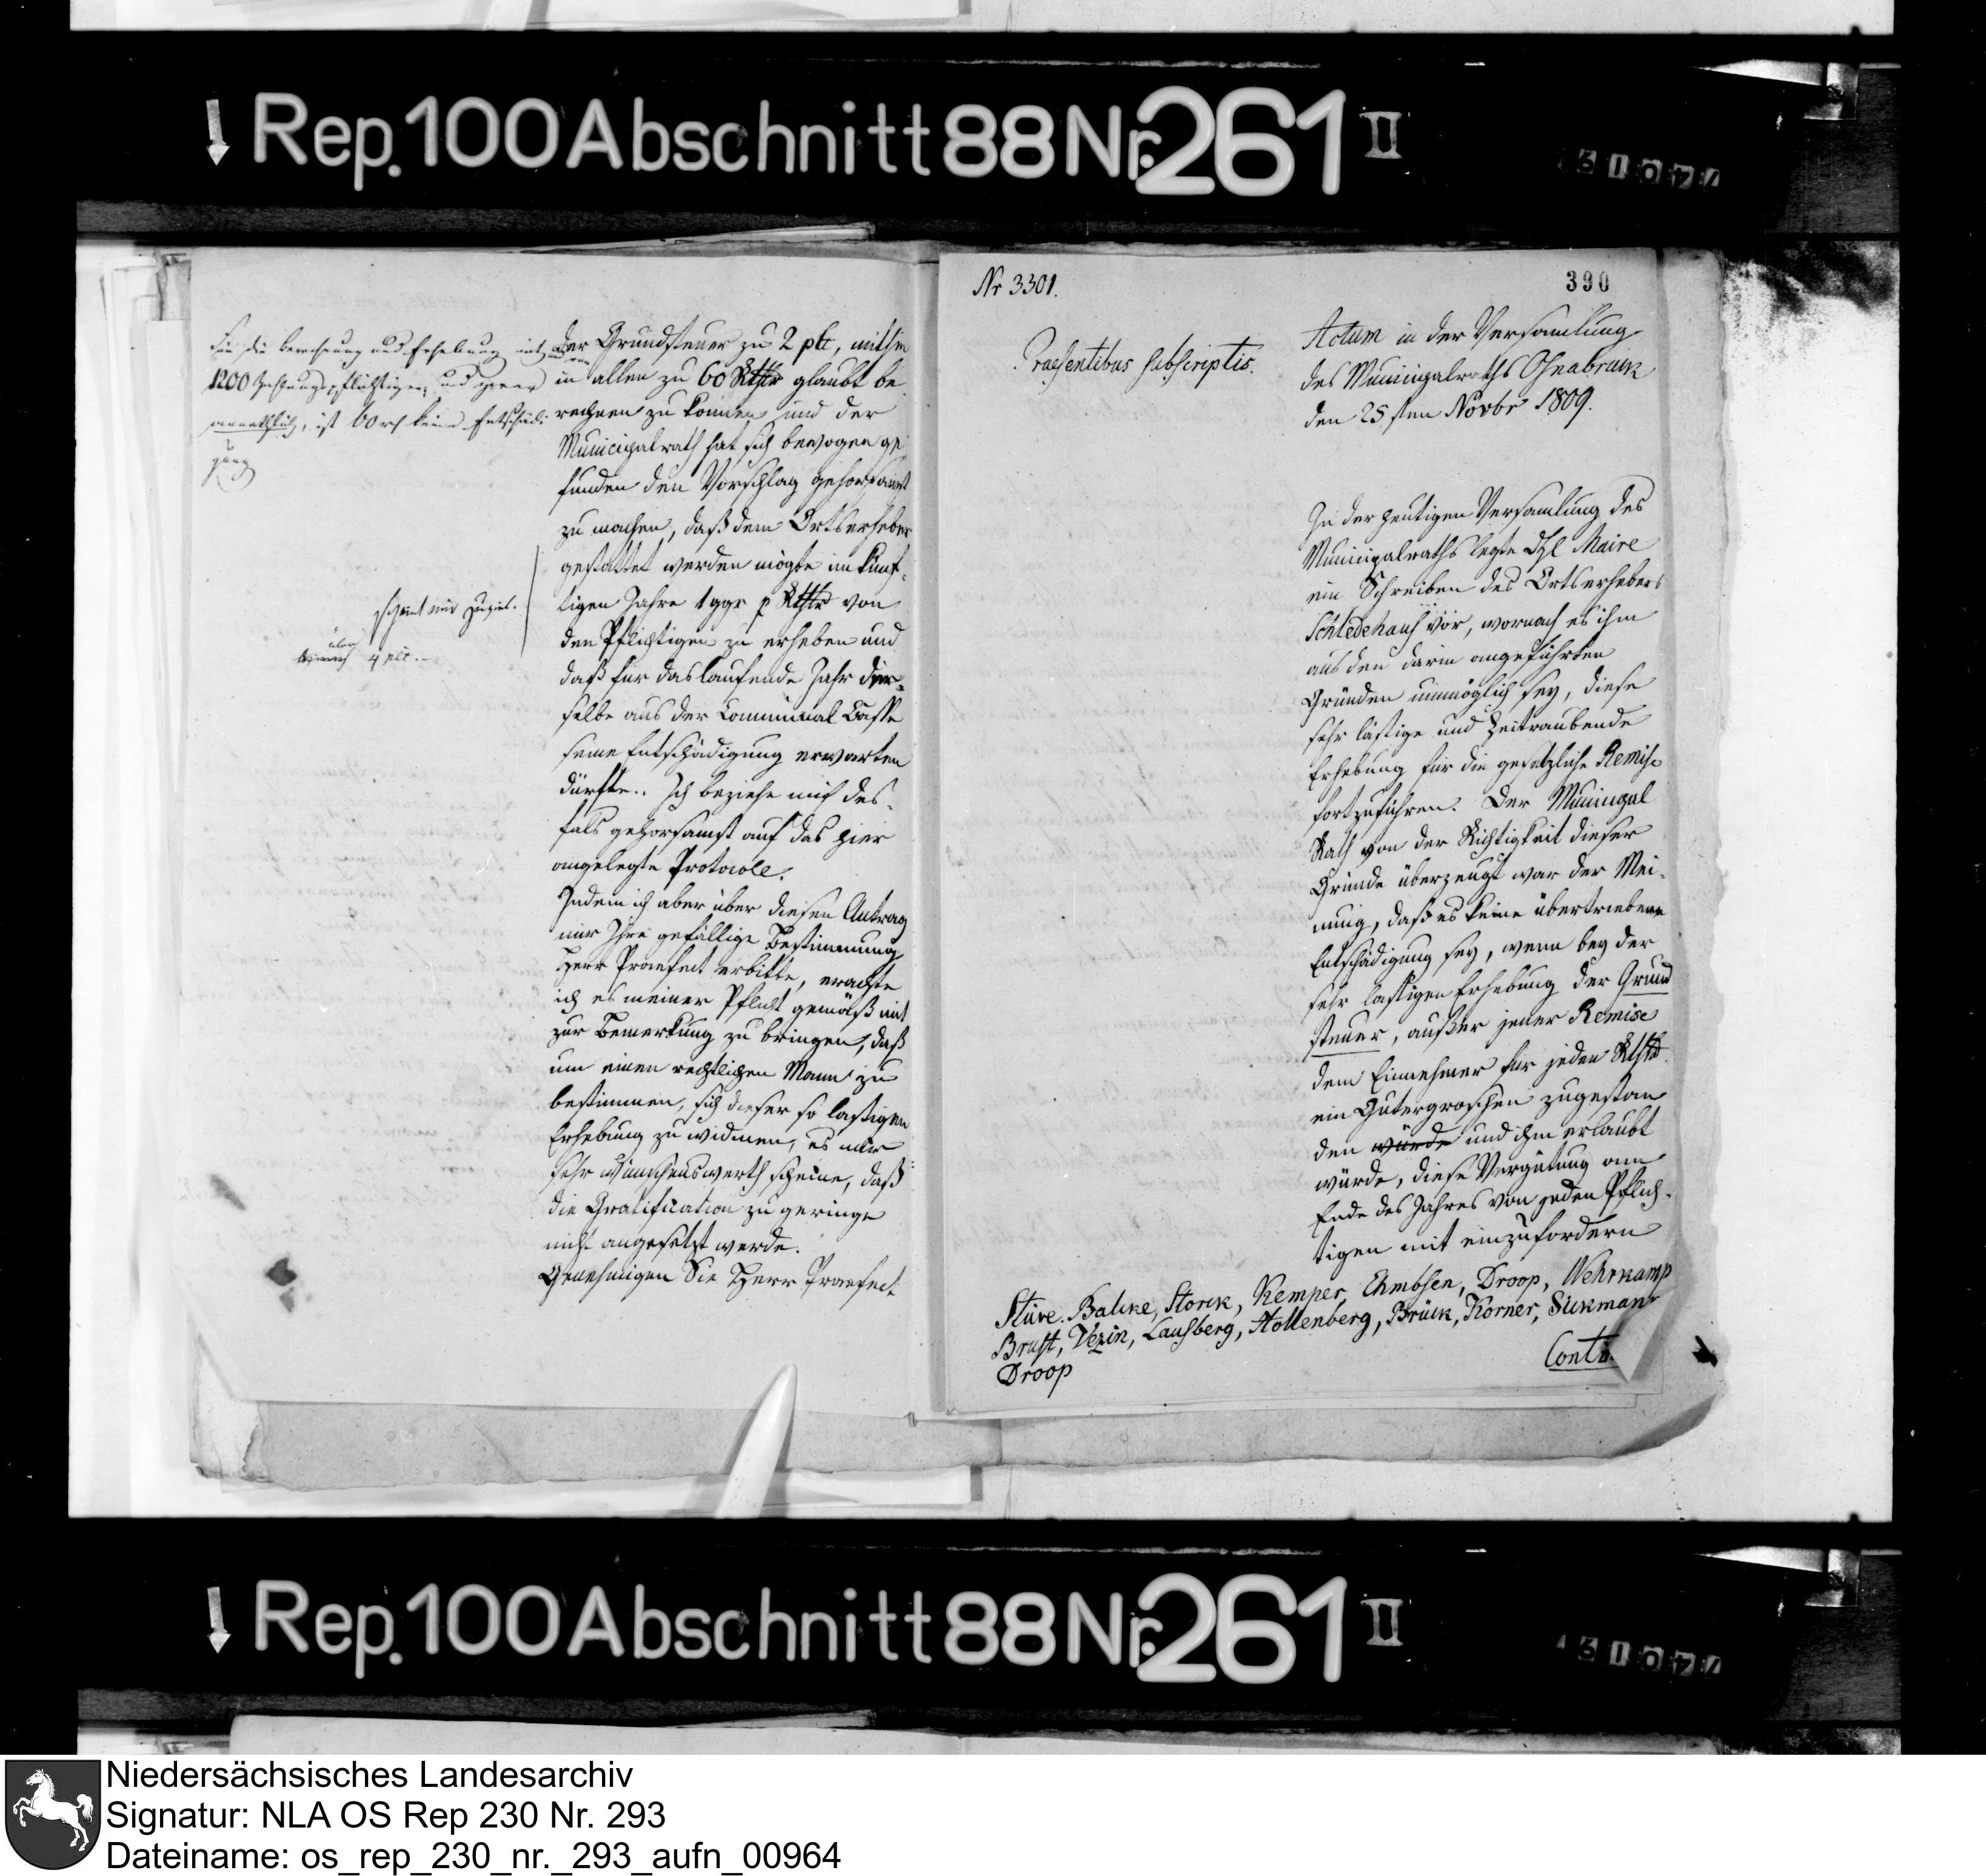 Rep. 100 Abschnitt 88 Nr. 261 II
Für die Berechnung und Erhebung mit
1200 Zahlungspflichtigen, und zwar
monathlich, ist 60 rh keine Entschädi-
gung
scheint mir zuviel.
über
4 pCt.
der Grundsteuer zu 2 pCt, mithin
in allen zu 60 Rthlr glaubt be
rechnen zu können und der
Municipalrath hat sich bewogen ge
funden den Vorschlag gehorsamst
zu machen, daß dem Ortserheber
gestattet werden mögte im künf-
tigen Jahre 1 ggr p Rthlr von
den Pflichtigen zu erheben und
daß für das laufende Jahr der-
selbe aus der Communal Casse
seine Entschädigung erwarten
dürfte. Ich beziehe mich des-
fals gehorsamst auf das hier
angelegte Protocoll.
Indem ich aber über diesen Antrag
mir Ihre gefällige Bestimmung
Herr Praefect erbitte, erachte
ich es meiner Pflicht gemäß mit
zur Bemerkung zu bringen, daß
um einen rechtlichen Mann zu
bestimmen, sich dieser so lästigen
Erhebung zu widmen, es mir
sehr wünschenswerth scheine, daß
die Gratification zu geringe
nicht angesetzt werde.
Genehmigen Sie Herr Praefect
Nr 3301.
390
Praesentibus subscriptis.
Actum in der Versamlung
des Municipalraths Osnabruck
den 25sten Novbr 1809.
In der heutigen Versamlung des
Municipalraths legte Maire
ein Schreiben des Ortserhebers
Schledehaus vor, wornach es ihm
aus den darin angeführten
Gründen unmöglich sey, diese
sehr lästige und Zeitraubende
Erhebung für die gesetzliche Remise
fortzuführen. Der Municipal
Rath von der Richtigkeit dieser
Gründe überzeugt war der Mei-
nung, daß es keine übertriebene
Entschädigung sey, wenn bey der
sehr lästigen Erhebung der Grund
steuer, außer jener Remise
dem Einnehmer für jeden Rthlr.
ein Gutergroschen zugestan
den würde und ihm erlaubt
würde, diese Vergütung am
Ende des Jahres von jeden Pflich-
tigen mit einzufordern
Stüve. Balcke, Storck, Kemper, Ehmbsen, Droop, Wehrkamp
Brust, Vezin, Lausberg, Hollenberg, Brück, Korner, Sickmann
Droop
Rep. 100 Abschnitt 88 Nr. 261 II
Niedersächsisches Landesarchiv
Signatur: NLA OS Rep 230 Nr. 293
Dateiname: os_rep_230_nr._293_aufn_00964